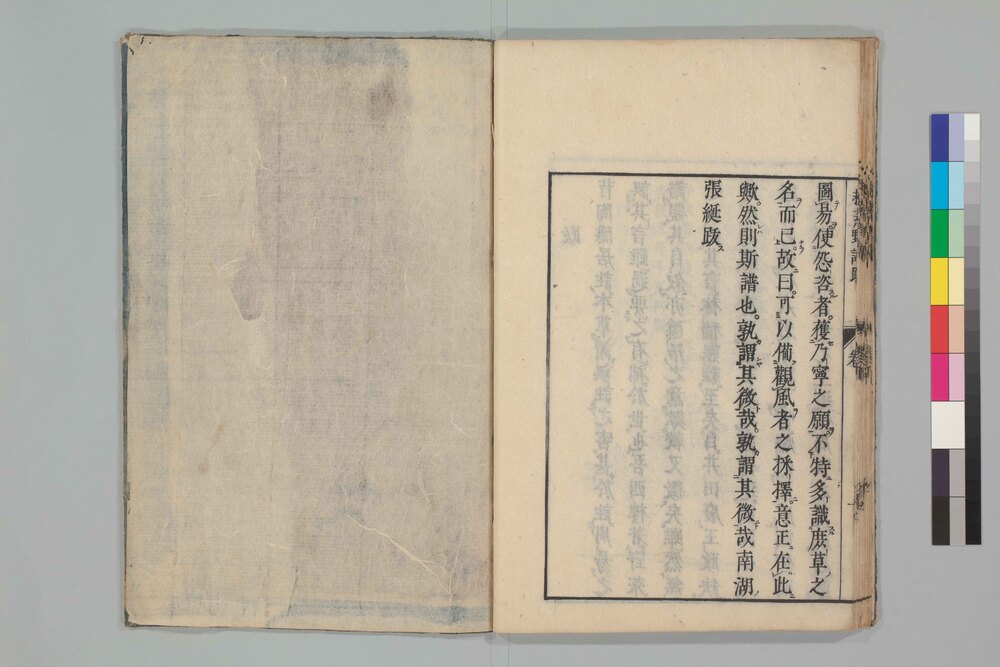 圖易使怨咨者獲乃寧之願不特多識庶草之
名而已故曰可以備觀風者之採擇意正在此
歟然則斯譜也孰謂其微哉孰謂其微哉南湖
張綖跋